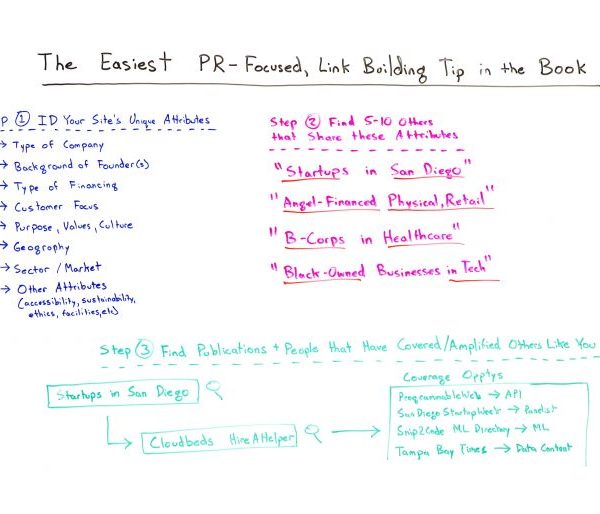 The Easiest PR-Focused, Link Building Tip in the Book
P ① ID Your Site's Unique Attributes
→ Type of Company
→ Background of Founder(s)
→ Type of Financing
→ Customer Focus
→ Purpose, Values, Culture
→ Geography
→ Sector / Market
→ Other Attributes
(accessibility, sustainability,
ethics, facilities, etc)
Step ② Find 5-10 Others
that Share these Attributes
"Startups in San Diego"
"Angel-Financed Physical, Retail"
"B-Corps in Healthcare"
"Black-Owned Businesses in Tech"
Step ③ Find Publications + People that Have Covered/Amplified Others Like You
Startups in San Diego
Cloudbeds HireAHelper
Coverage Opptys
ProgrammableWeb → API
San Diego StartupWeek → Panelist
Snip2Code ML Directory → ML
Tampa Bay Times → Data Content